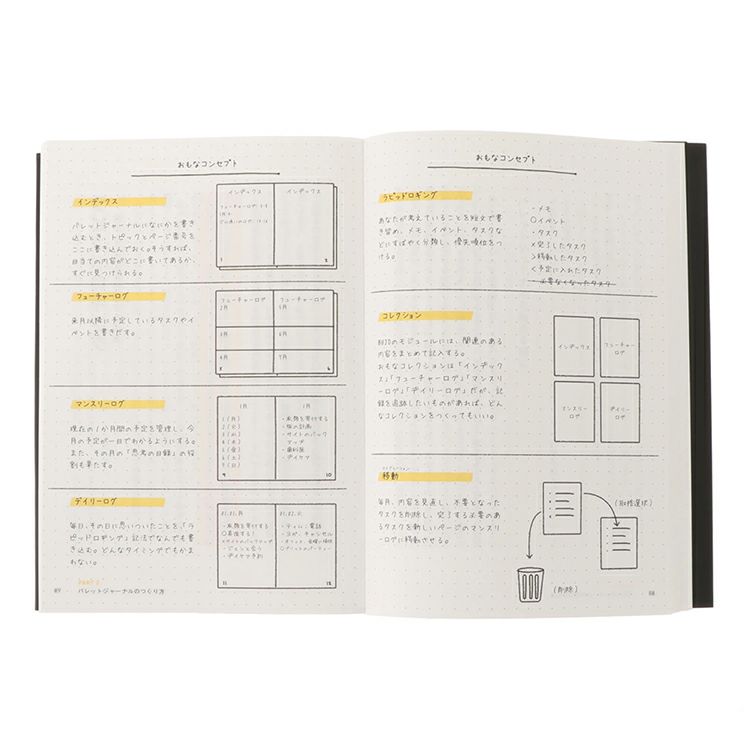 おもなコンセプト
インデックス
バレットジャーナルになにかを書き
込むとき、トピックとページ番号を
ここに書き込んでおく。そうすれば、
目当ての内容がどこに書いてあるか、
すぐに見つけられる。
インデックス
インデックス
フューチャーログ:
1
2
フューチャーログ
来月以降に予定しているタスクや
イベントを書きだす。
フューチャーログ
2月
フューチャーログ
5月
3月
6月
4月
7月
マンスリーログ
現在の1か月間の予定を管理し、今
月の予定が一目でわかるようにする。
また、その月の「思考の目録」の役
割も果たす。
1月
1(月)
2(火)
3(水)
4(木)
5(金)
6(土)
7(日)
9
1月
・灰類を寄付する
・旅の計画
・サイトのバック
アップ
・歯科医
・デイケア
10
デイリーログ
毎日、その日に思いついたことを、「ラ
ピッドロギング」記法でなんでも書
き込む。どんなタイミングでもかま
わない。
01.01.月
11
01.02.火
・ティム：電話
・ヨガ：キャンセル
12
87
バレットジャーナルのつくり方
おもなコンセプト
ラピッドロギング
あなたが考えていることを短文で書
き留め、メモ、イベント、タスクな
どにすばやく分類し、優先順位をつ
ける。
-メモ
○イベント
・タスク
×完了したタスク
>移動したタスク
<予定に入れたタスク
・必要なくなったタスク
コレクション
BUJOのモジュールには、関連のある
内容をまとめて記入する。
おもなコレクションは「インデック
ス」「フューチャーログ」「マンスリ
ーログ」「デイリーログ」だが、記
録を追跡したいものがあれば、どん
なコレクションをつくってもいい。
インデックス
フューチャー
ログ
マンスリー
ログ
デイリー
ログ
移動
毎月、内容を見直し、不要となった
タスクを削除し、完了する必要のあ
るタスクを新しいページのマンスリ
ーログに移動させる。
(取捨選択)
(削除)
88